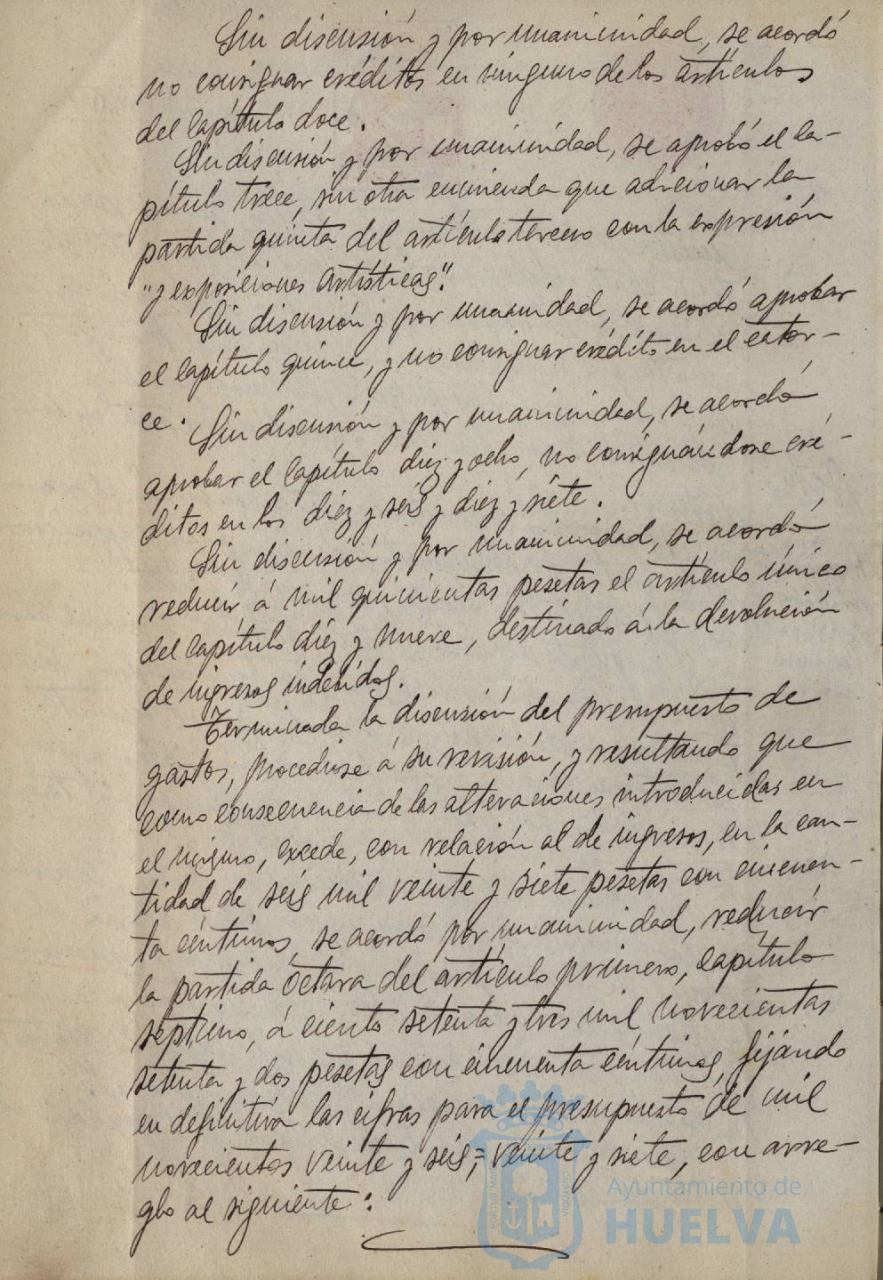 Sin discusión y por unanimidad, se acordó
no consignar créditos en ninguno de los artículos
del Capítulo doce.
Sin discusión y por unanimidad, se aprobó el Ca-
pítulo trece, sin otra enmienda que adicionar la
partida quinta del artículo tercero con la expresión
"y exposiciones Artísticas".
Sin discusión y por unanimidad, se acordó aprobar
el Capítulo quince, y no consignar crédito en el cator-
ce.
Sin discusión y por unanimidad, se acordó
aprobar el Capítulo diez y ocho, no consignándose cré-
ditos en los diez y seis y diez y siete.
Sin discusión y por unanimidad, se acordó
reducir á mil quinientas pesetas el artículo único
del Capítulo diez y nueve, destinado á la devolución
de ingresos indebidos.
Terminada la discusión del presupuesto de
gastos, procediose á su revisión, y resultando que
como consecuencia de las alteraciones introducidas en
el mismo, excede, con relación al de ingresos, en la can-
tidad de seis mil veinte y siete pesetas con cincuen-
ta céntimos, se acordó por unanimidad, reducir
la partida octava del artículo primero, Capítulo
séptimo, á ciento setenta y tres mil novecientas
setenta y dos pesetas con cincuenta céntimos, fijando
en definitiva las cifras para el presupuesto de mil
novecientos veinte y seis = veinte y siete, con arre-
glo al siguiente:
Ayuntamiento de
HUELVA